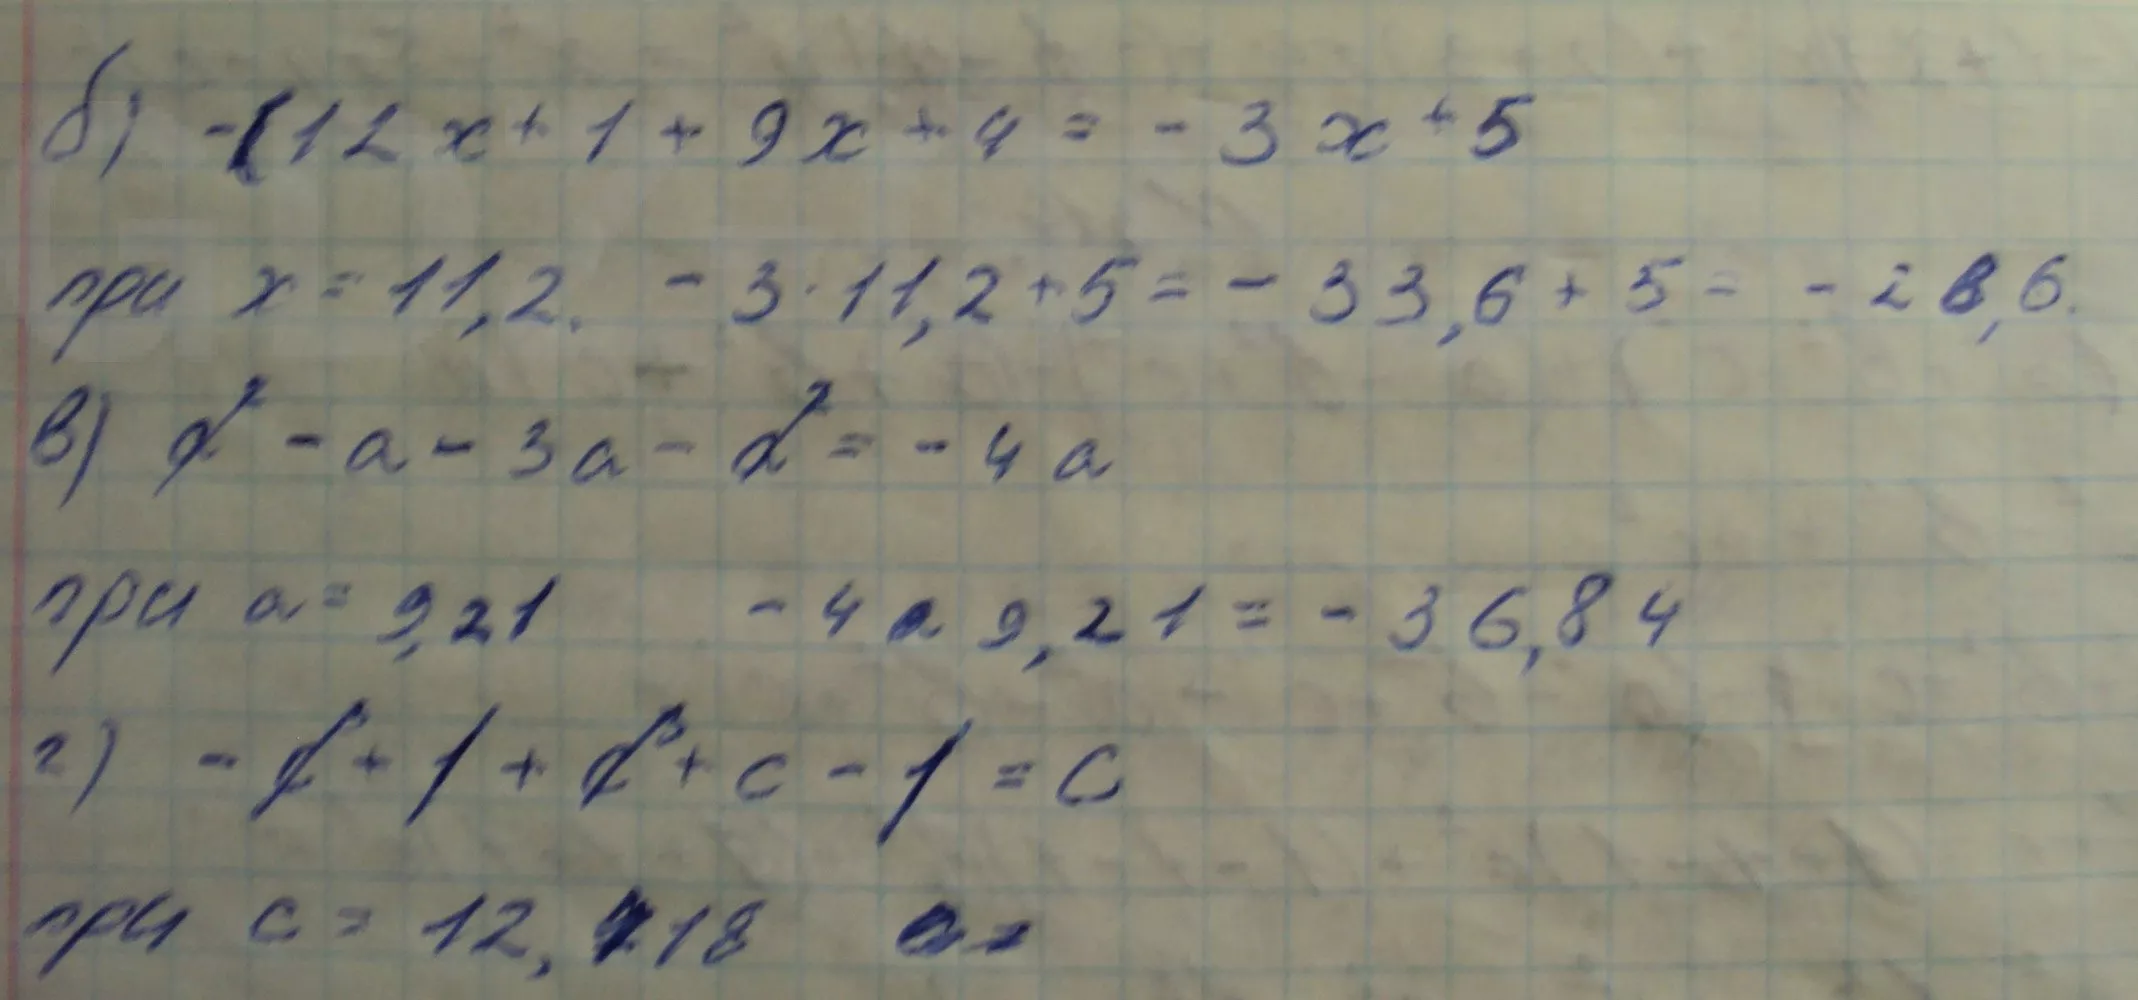 б) -12x + 1 + 9x + 4 = -3x + 5
при x = 11,2. -3·11,2 + 5 = -33,6 + 5 = -28,6.
в) a² - a - 3a - a² = -4a
при a = 9,21 -4 · 9,21 = -36,84
г) -c³ + 1 + c³ + c - 1 = c
при c = 12,718